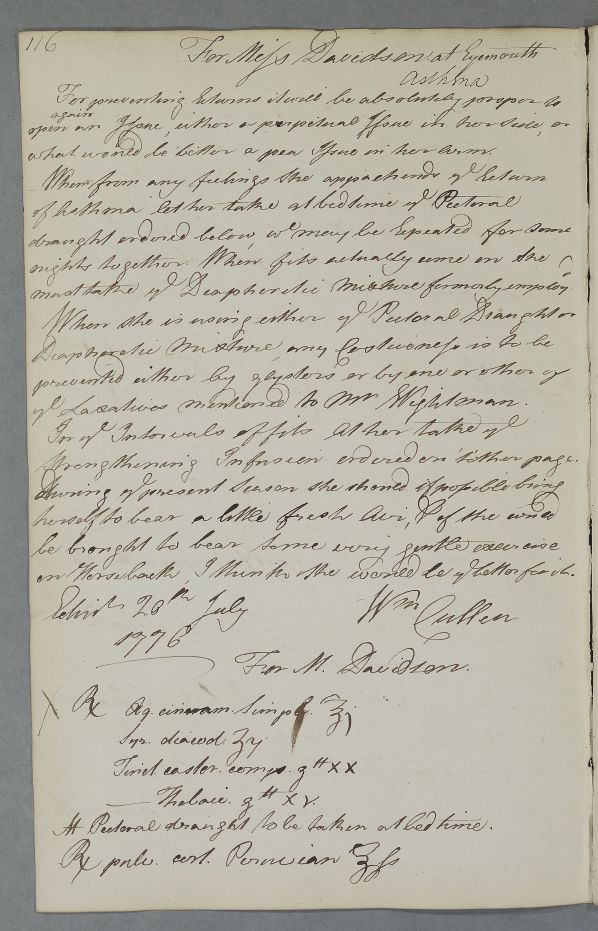 116
For Miss Davidson at Eyemouth
Asthma
For preventing Returns it will be absolutely proper to
again
open an Issue, either a perpetual Issue in her side, or
what would be better a pea Issue in her arm.
When from any feelings she apprehends ye Return
of Asthma let her take at bedtime ye Pectoral
draught ordered below, wc may be Repeated for some
nights together. When fits actually come on she
must take ye Diaphoretic mixture formerly employ'd
When she is using either ye Pectoral Draught or
Diaphoretic Mixture, any Costiveness is to be
prevented either by glysters or by one or other of
ye Laxatives mentioned to Mr Wightman.
In ye Intervals of fits let her take ye
strengthening Infusion ordered on t'other page.
During ye present Season she should if possible bring
herself to bear a little fresh Air, & if she could
be brought to bear some very gentle exercise
on Horseback, I think she would be ye better for it.
Edinr 20th July
1776
Wm Cullen
For M. Davidson.
℞ Aq. cinnam. Simpl. ℥j
Syr. diacod. ʒij
Tinct. castor. comp. gtt XX
— Thebaic. gtt XV.
ft Pectoral draught to be taken at bedtime.
℞ pulv. cort. Peruvian ℥ss